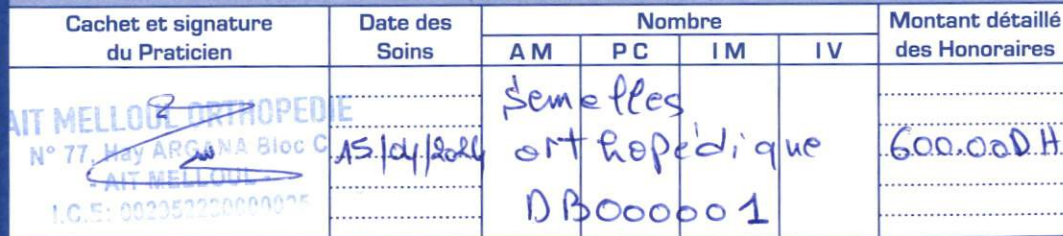 Cachet et signature du Praticien
Date des Soins
Nombre
Montant détaillé des Honoraires
AM PC IM IV
AIT MELLOUL ORTHOPEDIE
N° 77, Hay ARGANA Bloc C
- AIT MELLOUL -
I.C.E:
15/04/2024
Semelles
orthopédique
DB000001
600.00DH